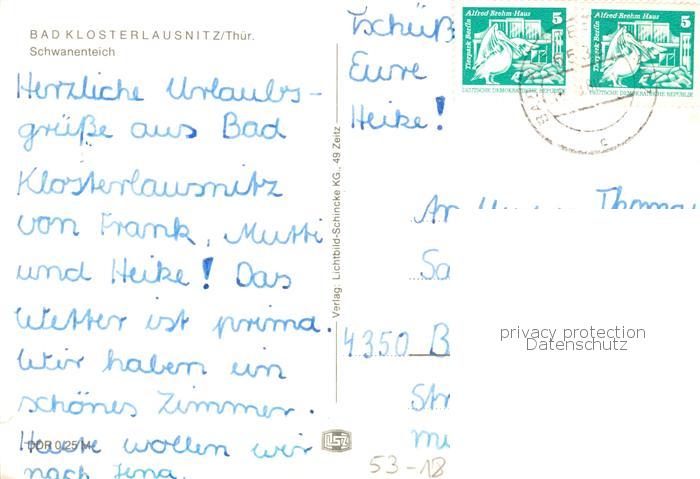 BAD KLOSTERLAUSNITZ/Thür.
Schwanenteich
Herzliche Urlaubs-
grüße aus Bad
Klosterlausnitz
von Frank, Mutti
und Heike! Das
Wetter ist prima.
Wir haben ein
schönes Zimmer.
Heute wollen wir
nach Jena.
DDR 0/25 M
Verlag: Lichtbild-Schincke KG., 49 Zeitz
Tschüß
Eure
Heike!
Alfred-Brehm-Haus
5
Tierpark Berlin
DEUTSCHE DEMOKRATISCHE REPUBLIK
Alfred-Brehm-Haus
5
Tierpark Berlin
DEUTSCHE DEMOKRATISCHE REPUBLIK
Thomas
4350 B
privacy protection
Datenschutz
53-18